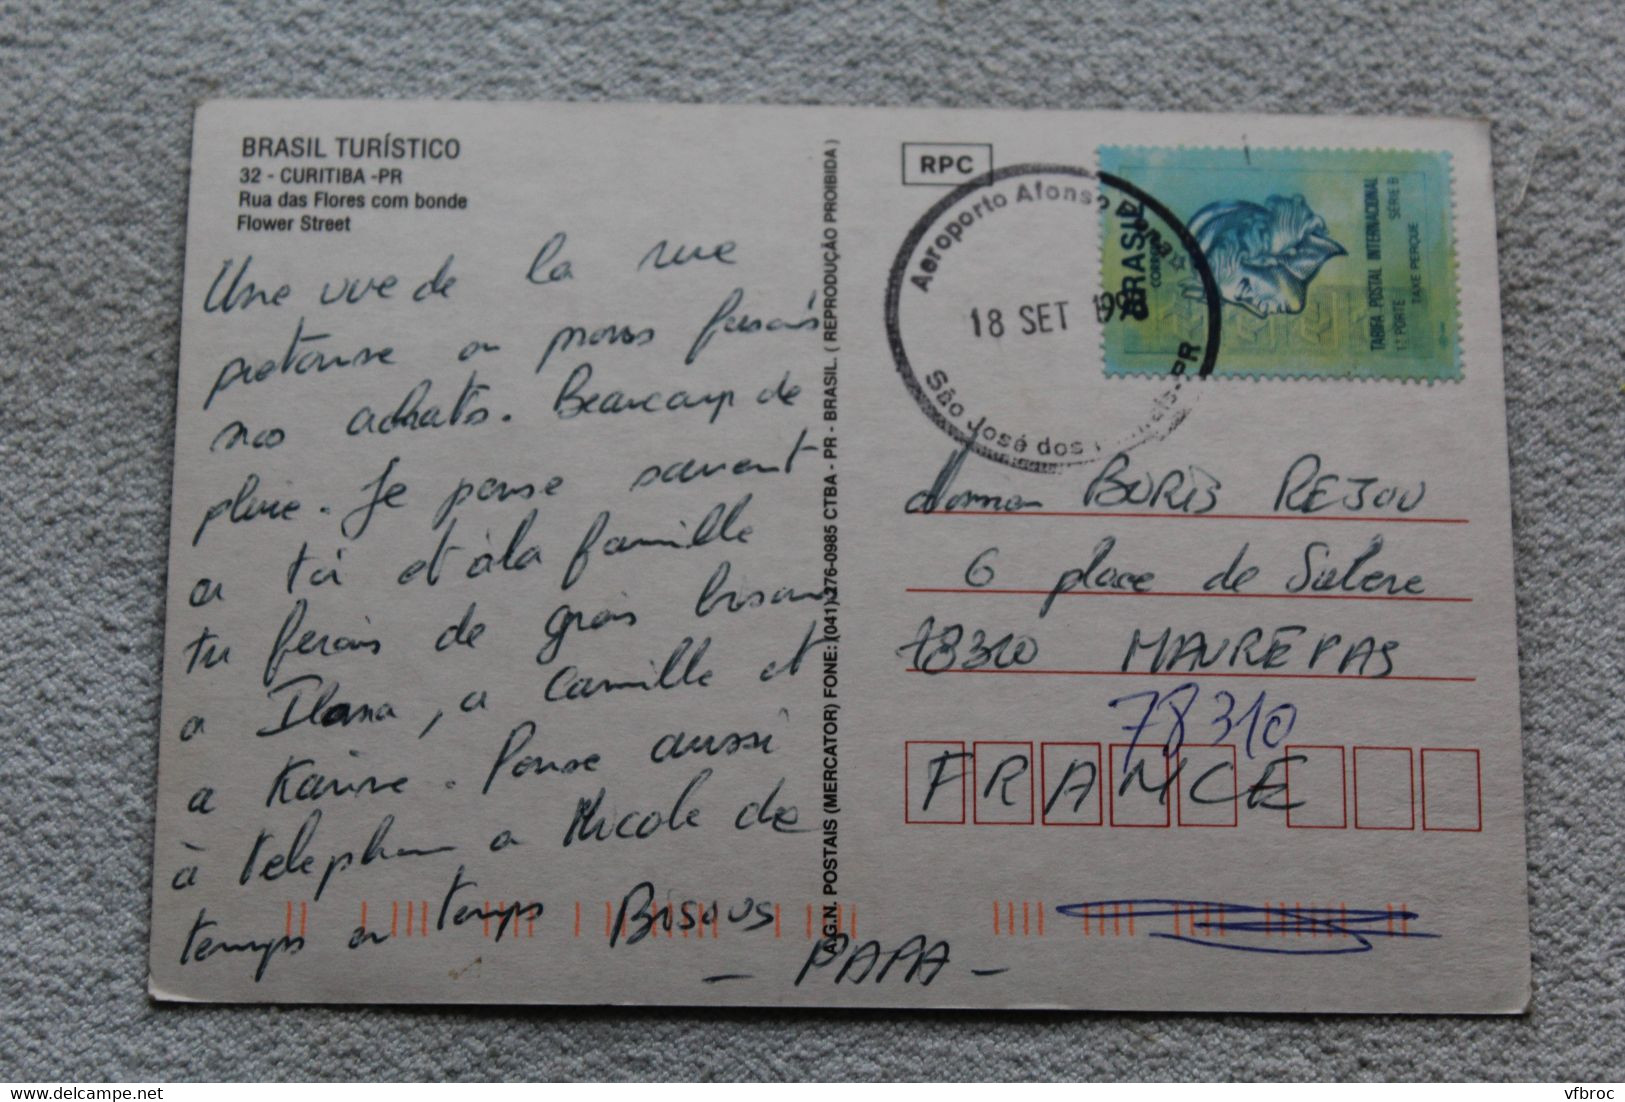 BRASIL TURÍSTICO
32 - CURITIBA -PR
Rua das Flores com bonde
Flower Street
Une vue de la rue
pietonne ou nous faisons
nos achats. Beaucoup de
pluie. Je pense souvent
a toi et à la famille
tu ferais de gros bisous
a Ilana, a Camille et
a Karine. Pense aussi
à telephoner a Nicole de
temps en temps Bisous
- PAPA -
A.G.N. POSTAIS (MERCATOR) FONE: (041) 276-0985 CTBA - PR - BRASIL. ( REPRODUÇÃO PROIBIDA )
RPC
Aeroporto Afonso Pena
18 SET 199
São José dos Pinhais-PR
BRASIL
CORREIO
TARIFA POSTAL INTERNACIONAL
1º PORTE SÉRIE B
TAXE PERÇUE
BORIS REJOU
6 place de
78310 MAUREPAS
78310
FRANCE
vfbroc